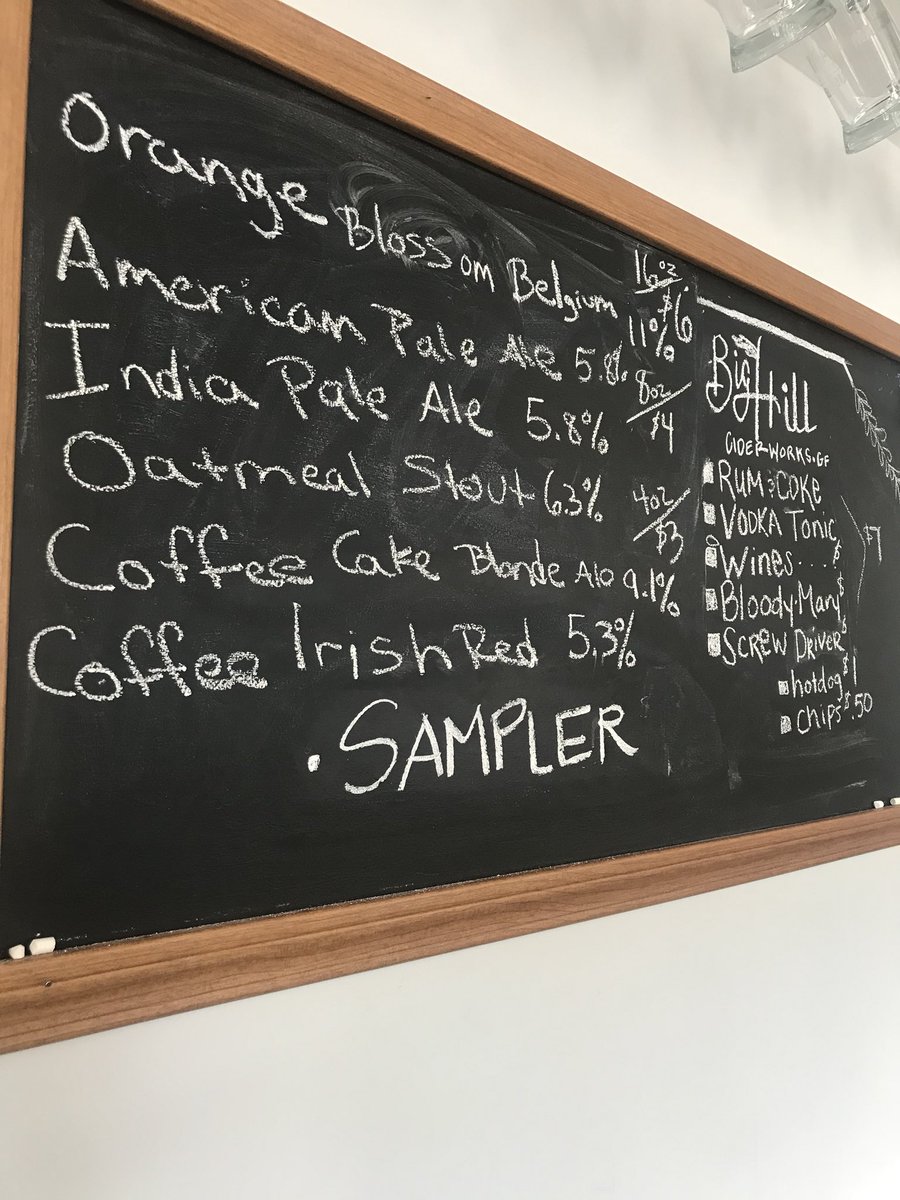 Orange Blossom Belgium 11%
American Pale Ale 5.8%
India Pale Ale 5.8%
Oatmeal Stout 6.3%
Coffee Cake Blonde Ale 9.1%
Coffee Irish Red 5.3%
. SAMPLER
16oz
$6
8oz
$4
4oz
$3
Big Hill
CIDERWORKS.GF
RUM & COKE
VODKA TONIC
Wines....$
Bloody.Mary $
SCREW DRIVER $
hotdog $1
chips $.50